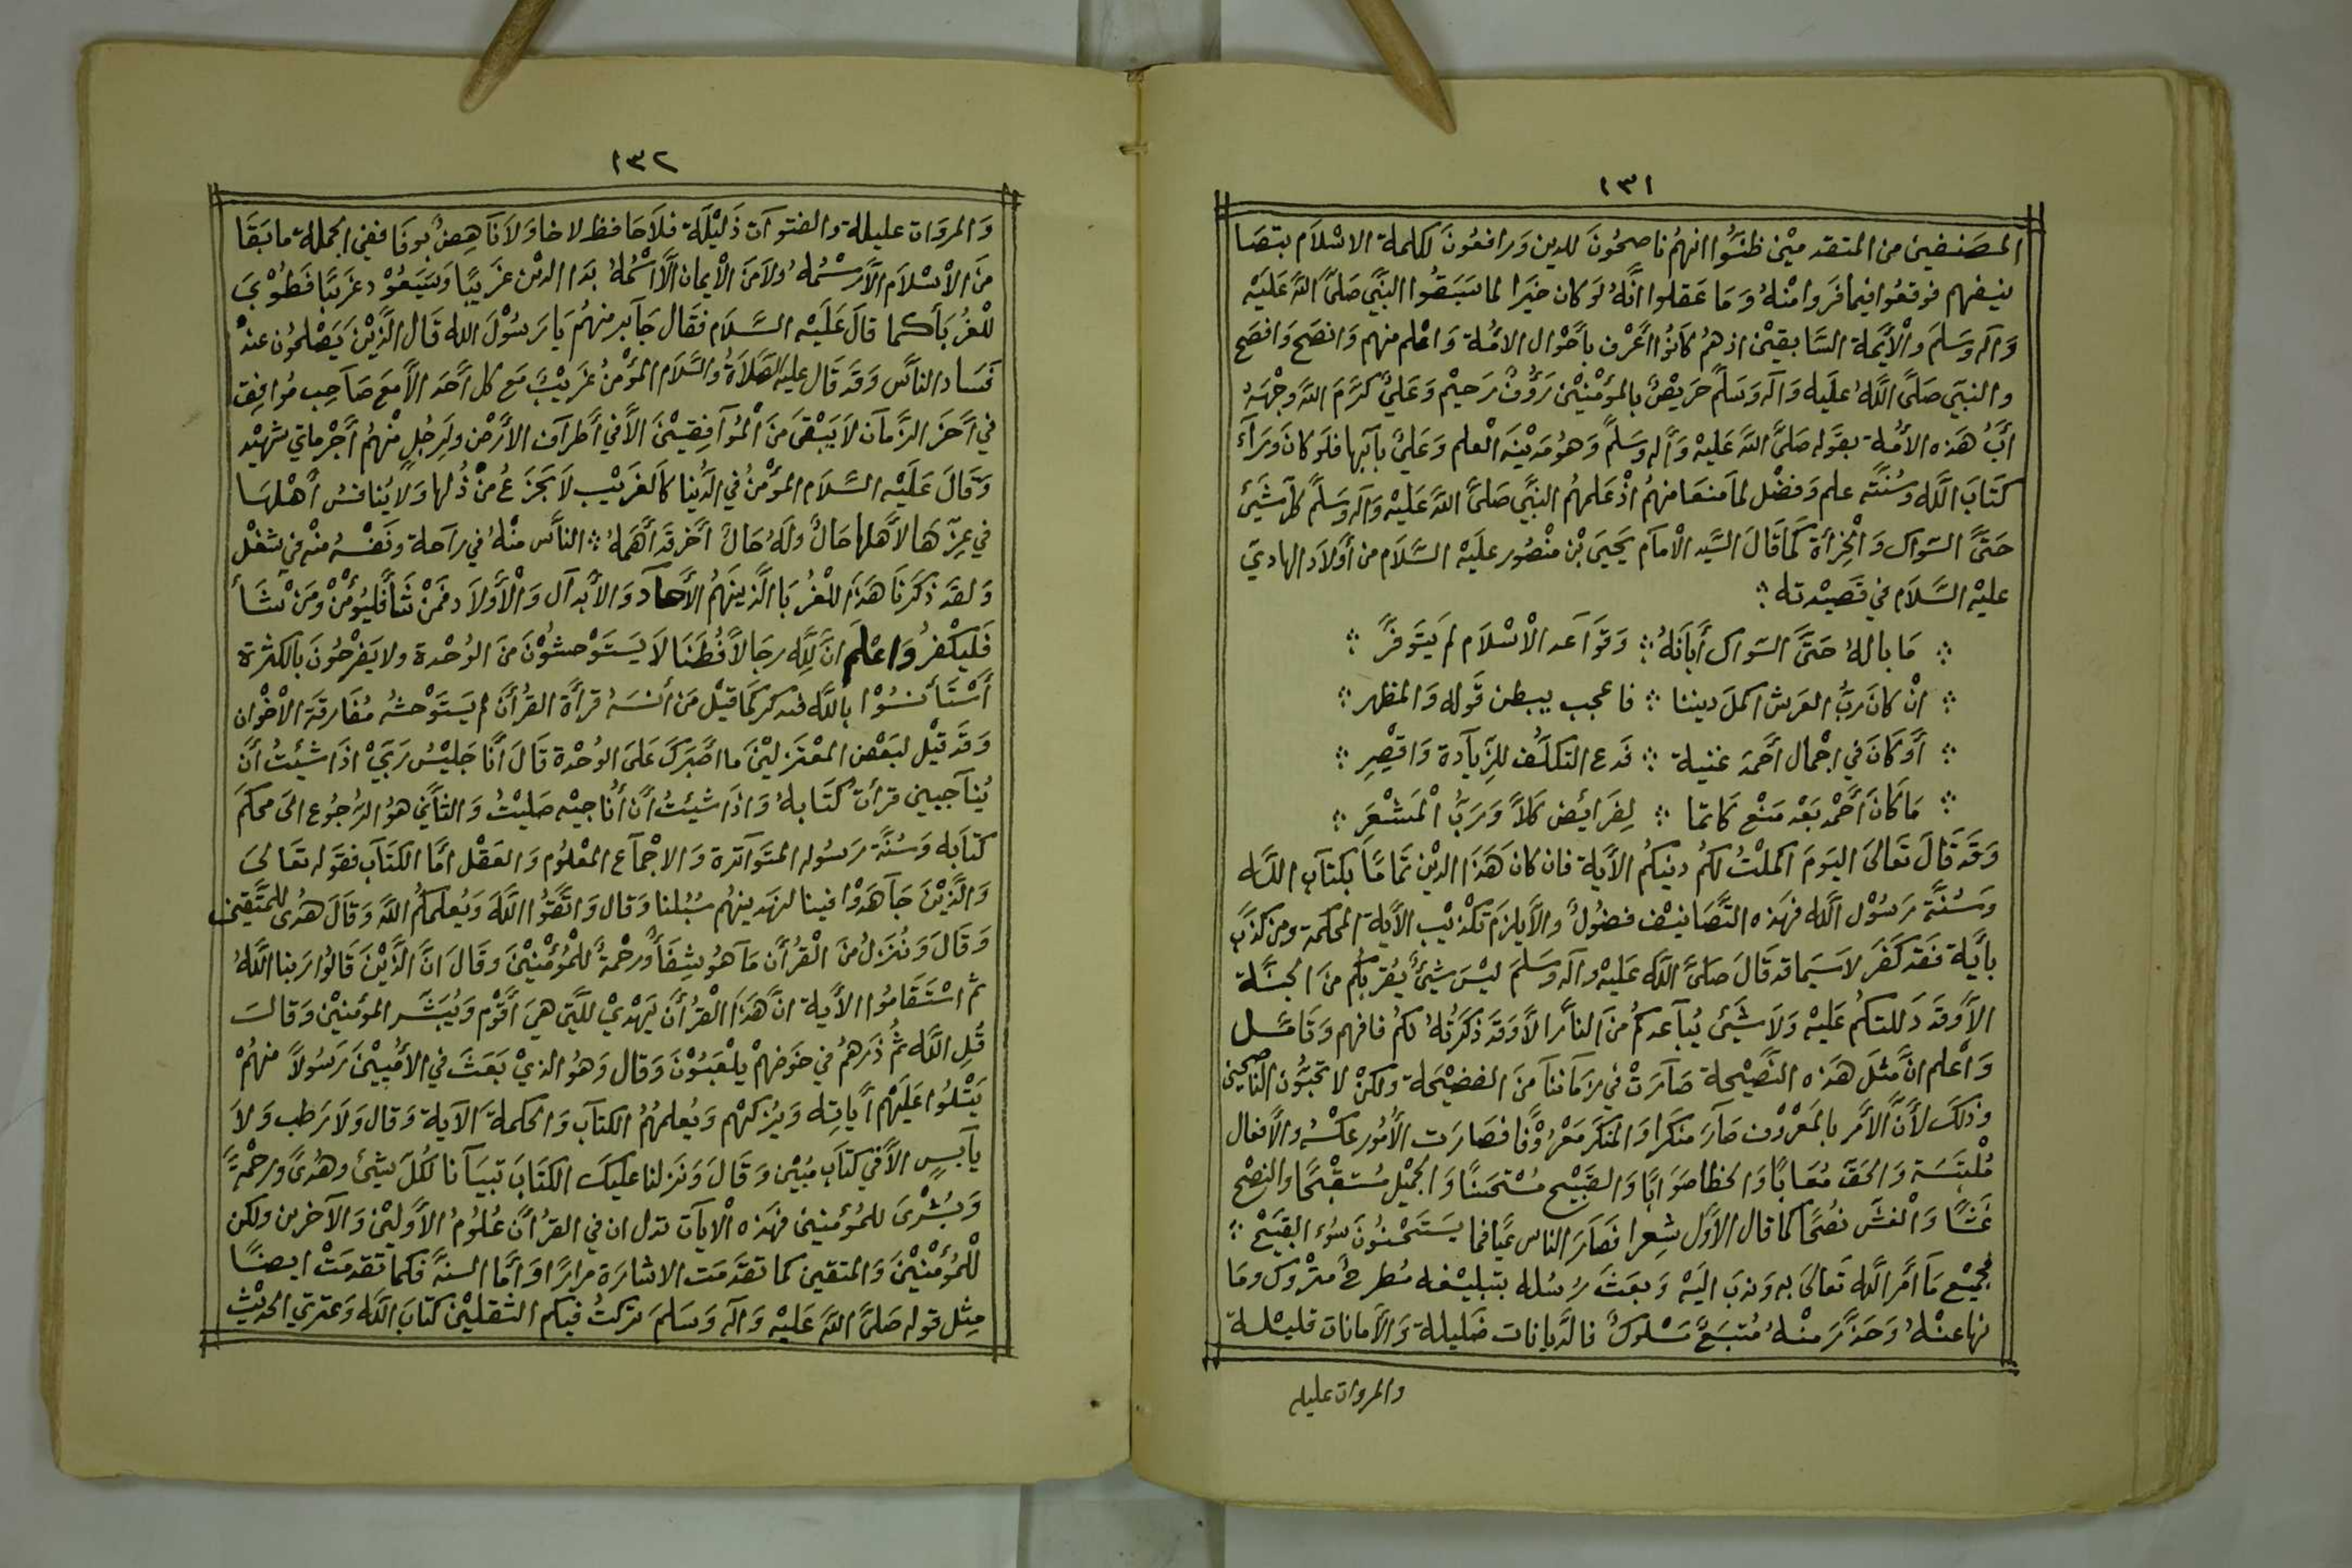 ١٣١
المصنفين من المتقدمين ظنوا انهم ناصحون للدين ورافعون لكلمة الاسلام بتصا
نيفهم فوقعوا فيما فروا منه وما عقلوا أنه لو كان خيرا لما سبقوا النبي صلى الله عليه
وآله وسلم والأيمة السابقين اذ هم كانوا أعرف بأحوال الامة واعلم منهم وانصح وافصح
والنبي صلى الله عليه وآله وسلم حريص بالمؤمنين رؤف رحيم وعلي كرم الله وجهه
أب هذه الأمة بقوله صلى الله عليه وآله وسلم وهو مدينة العلم وعلي بابها فلو كان ورآء
كتاب الله وسنته علم وفضل لما منعا منهم اذ علمهم النبي صلى الله عليه وآله وسلم كل شيئ
حتى السواك والخرأة كما قال السيد الامام يحيى بن منصور عليه السلام من أولاد الهادي
عليه السلام في قصيدته ؞
؞ ما باله حتى السواك أبانه ؞ وقوآعد الاسلام لم يتوفر ؞
؞ ان كان رب العرش اكمل ديننا ؞ فاعجب ببطن قوله والمظهر ؞
؞ أو كان في اجمال أحمد غنية ؞ فدع التكلف للزيآدة واقصر ؞
؞ ما كان أحمد بعد منع كاتما ؞ لفرائض كلا ورب المشعر ؞
وقد قال تعالى اليوم اكملت لكم دينكم الآية فان كان هذا الدين تماما بكتاب الله
وسنة رسول الله فهذه التصانيف فضول والا يلزم تكذيب الآية المحكمة ومن كذب
بأية فقد كفر لاسيما قد قال صلى الله عليه وآله وسلم ليس شيئ يقربكم من الجنة
الا وقد دللتكم عليه ولا شيئ يباعدكم من النار الا وقد ذكرته لكم فافهم وتأمل
واعلم ان مثل هذه النصيحة صارت في زماننا من الفضيحة ولكن لا تحبون الناصحين
وذلك لأن الأمر بالمعروف صآر منكرا والمنكر معروفا فصارت الأمور عكسه والأفعال
ملتبسة والحق معابا والخطا صوابا والقبيح مستحسنا والجميل مستقبحا والنصح
غشا والغش نصحا كما قال الأول شعرا فصار الناس عميا فما يستحسنون سوء القبيح ؞
فجميع ما أمر الله تعالى به وندب اليه وبعث رسله بتبليغه مطرح متروك وما
نها عنه وحذر منه متبع مسلوك فالديانات ضليلة والأمانات قليلة
والمروات عليله
١٣٢
والمروات عليلة والفتوآت ذليلة فلا حافظ لاخا ولا ناهض بوفا ففي الجملة ما بقا
من الاسلام الا رسمه ولا من الايمان الا اسمه بدا الدين غريبا وسيعود غريبا فطوبى
للغربا كما قال عليه السلام فقال جابر منهم يا رسول الله قال الذين يصلحون عند
فساد الناس وقد قال عليه الصلاة والسلام المؤمن غريب مع كل أحد الا مع صآحب موافق
في آخر الزمان لا يبقى من الموآفقين الا في أطراف الأرض ولرجل منهم أجر ماتي شهيد
وقال عليه السلام المؤمن في الدنيا كالغريب لا يجزع من ذلها ولا ينافس أهلها
في عزها لأهلها حال وله حال أخر قد أهمه ؞ الناس منه في رآحة ونفسه منه في شغل
ولقد ذكرنا هذا للغربا الذين هم الأحآد والأبدال والأولاد فمن شأ فليؤمن ومن شأ
فليكفر واعلم ان لله رجالا فطنا لا يستوحشون من الوحدة ولا يفرحون بالكثرة
أستأنسوا بالله كما قيل من أنسه قرأة القرآن لم يستوحشه مفارقة الاخوان
وقد قيل لبعض المعتزلين ما اصبرك على الوحدة قال أنا جليس ربي اذا شيئت أن
يناجيني قرأت كتابه واذا شيئت أن أناجيه صليت والثاني هو الرجوع الى محكم
كتابه وسنة رسوله المتوآترة والاجمآع المعلوم والعقل اما الكتاب فقوله تعالى
والذين جآهدوا فينا لنهدينهم سبلنا وقال واتقوا الله ويعلمكم الله وقال هدى للمتقين
وقال وننزل من القرآن مآ هو شفأ ورحمة للمؤمنين وقال ان الذين قالوا ربنا الله
ثم استقاموا الأية ان هذا القرأن يهدي للتي هي أقوم ويبشر المؤمنين وقال
قل الله ثم ذرهم في خوضهم يلعبون وقال وهو الذي بعث في الأميين رسولا منهم
يتلوا عليهم أياته ويزكيهم ويعلمهم الكتاب والحكمة الآية وقال ولا رطب ولا
يآبس الا في كتاب مبين وقال ونزلنا عليك الكتاب تبيآنا لكل شيئ وهدى ورحمة
وبشرى للمؤمنين فهذه الايآت تدل ان في القرآن علوم الأولين والآخرين ولكن
للمؤمنين والمتقين كما تقدمت الاشارة مرارا وأما السنة فكما تقدمت ايضا
مثل قوله صلى الله عليه وآله وسلم تركت فيكم الثقلين كتاب الله وعترتي الحديث